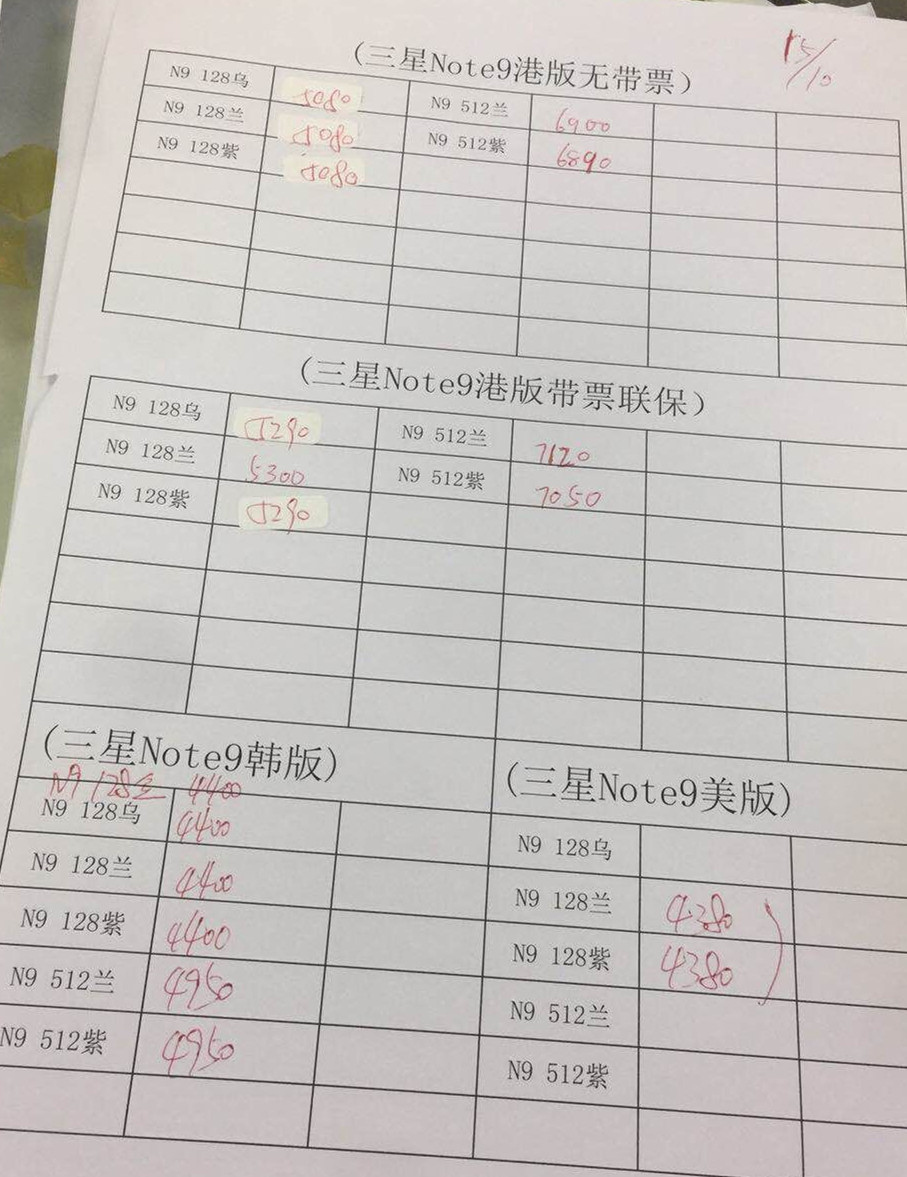 15/10
(三星Note9港版无带票)
N9 128乌 5080 N9 512兰 6900
N9 128兰 5080 N9 512紫 6890
N9 128紫 5080
(三星Note9港版带票联保)
N9 128乌 5290 N9 512兰 7120
N9 128兰 5300 N9 512紫 7050
N9 128紫 5290
(三星Note9韩版)
N9 128 4400
N9 128乌 4400
N9 128兰 4400
N9 128紫 4400
N9 512兰 4950
N9 512紫 4950
(三星Note9美版)
N9 128乌
N9 128兰 4380
N9 128紫 4380
N9 512兰
N9 512紫